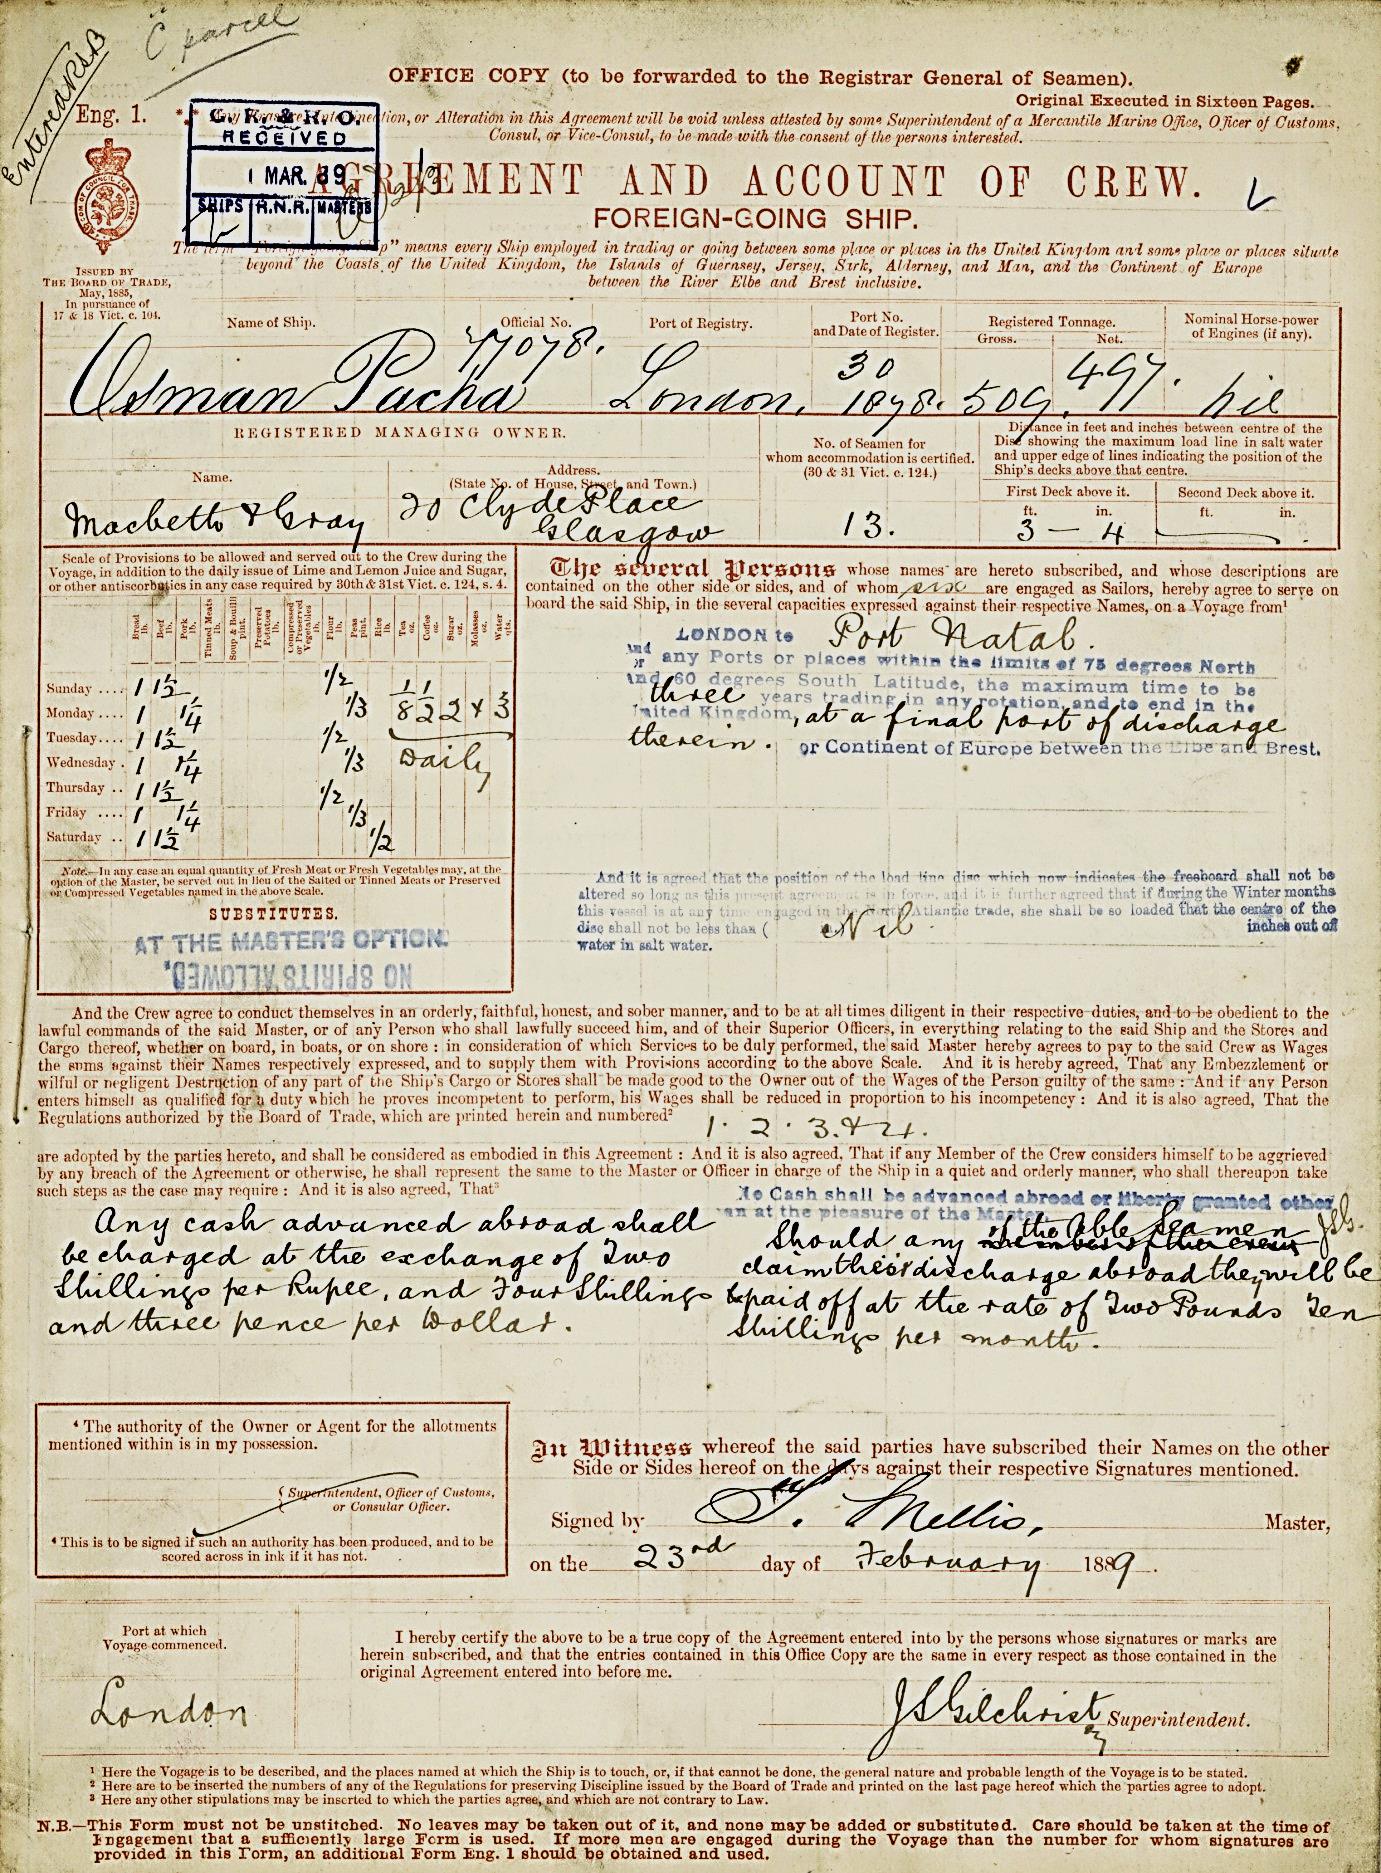 C parcel
Entered RSB
OFFICE COPY (to be forwarded to the Registrar General of Seamen).
Original Executed in Sixteen Pages.
Eng. 1.
or Alteration in this Agreement will be void unless attested by some Superintendent of a Mercantile Marine Office, Officer of Customs,
Consul, or Vice-Consul, to be made with the consent of the persons interested.
RECEIVED
1 MAR. 89
SHIPS R.N.R. MASTERS
AGREEMENT AND ACCOUNT OF CREW.
FOREIGN-GOING SHIP.
Ship" means every Ship employed in trading or going between some place or places in the United Kingdom and some place or places situate
beyond the Coasts of the United Kingdom, the Islands of Guernsey, Jersey, Sark, Alderney, and Man, and the Continent of Europe
between the River Elbe and Brest inclusive.
ISSUED BY
THE BOARD OF TRADE,
May, 1885,
In pursuance of
17 & 18 Vict. c. 104.
Name of Ship. Official No. Port of Registry. Port No. and Date of Register. Registered Tonnage. Gross. Net. Nominal Horse-power of Engines (if any).
Osman Pacha 77078. London. 30 1878. 509. 497. nil
REGISTERED MANAGING OWNER.
No. of Seamen for
whom accommodation is certified.
(30 & 31 Vict. c. 124.)
Distance in feet and inches between centre of the
Disc showing the maximum load line in salt water
and upper edge of lines indicating the position of the
Ship's decks above that centre.
Name. Address.
(State No. of House, Street, and Town.)
First Deck above it. Second Deck above it.
ft. in. ft. in.
Macbeth & Gray 20 Clyde Place
Glasgow 13. 3 — 4
Scale of Provisions to be allowed and served out to the Crew during the
Voyage, in addition to the daily issue of Lime and Lemon Juice and Sugar,
or other antiscorbutics in any case required by 30th & 31st Vict. c. 124, s. 4.
Bread lb. Beef lb. Pork lb. Tinned Meats lb. Soup & Bouilli pint. Preserved Potatoes lb. Compressed or Preserved Vegetables lb. Flour lb. Peas pint. Rice lb. Tea oz. Coffee oz. Sugar oz. Molasses oz. Water qts.
Sunday .... 1 1½ 1/2
Monday .... 1 1¼ 1/3 1/8 1/2 2 x 3
Tuesday.... 1 1½ 1/2
Wednesday . 1 1¼ 1/3 Daily
Thursday .. 1 1½ 1/2
Friday .... 1 1¼ 1/3
Saturday .. 1 1½ 1/2
Note.—In any case an equal quantity of Fresh Meat or Fresh Vegetables may, at the
option of the Master, be served out in lieu of the Salted or Tinned Meats or Preserved
or Compressed Vegetables named in the above Scale.
SUBSTITUTES.
AT THE MASTER'S OPTION.
NO SPIRITS ALLOWED.
The several Persons whose names are hereto subscribed, and whose descriptions are
contained on the other side or sides, and of whom six are engaged as Sailors, hereby agree to serve on
board the said Ship, in the several capacities expressed against their respective Names, on a Voyage from¹
LONDON to Port Natal.
and or any Ports or places within the limits of 75 degrees North
and 60 degrees South Latitude, the maximum time to be
three years trading in any rotation, and to end in the
United Kingdom, at a final port of discharge
therein. or Continent of Europe between the Elbe and Brest.
And it is agreed that the position of the load line disc which now indicates the freeboard shall not be
altered so long as this present agreement is in force, and it is further agreed that if during the Winter months
this vessel is at any time engaged in the North Atlantic trade, she shall be so loaded that the centre of the
disc shall not be less than ( Nil inches out of
water in salt water.
And the Crew agree to conduct themselves in an orderly, faithful, honest, and sober manner, and to be at all times diligent in their respective duties, and to be obedient to the
lawful commands of the said Master, or of any Person who shall lawfully succeed him, and of their Superior Officers, in everything relating to the said Ship and the Stores and
Cargo thereof, whether on board, in boats, or on shore : in consideration of which Services to be duly performed, the said Master hereby agrees to pay to the said Crew as Wages
the sums against their Names respectively expressed, and to supply them with Provisions according to the above Scale. And it is hereby agreed, That any Embezzlement or
wilful or negligent Destruction of any part of the Ship's Cargo or Stores shall be made good to the Owner out of the Wages of the Person guilty of the same : And if any Person
enters himself as qualified for a duty which he proves incompetent to perform, his Wages shall be reduced in proportion to his incompetency : And it is also agreed, That the
Regulations authorized by the Board of Trade, which are printed herein and numbered² 1. 2. 3. & 4.
are adopted by the parties hereto, and shall be considered as embodied in this Agreement : And it is also agreed, That if any Member of the Crew considers himself to be aggrieved
by any breach of the Agreement or otherwise, he shall represent the same to the Master or Officer in charge of the Ship in a quiet and orderly manner, who shall thereupon take
such steps as the case may require : And it is also agreed, That³
No Cash shall be advanced abroad or liberty granted other
than at the pleasure of the Master
Any cash advanced abroad shall
be charged at the exchange of Two
Shillings per Rupee, and Four Shillings
and three pence per Dollar.
Should any of the Able Seamen JSG.
claim their discharge abroad they will be
paid off at the rate of Two Pounds Ten
Shillings per month.
⁴ The authority of the Owner or Agent for the allotments
mentioned within is in my possession.
Superintendent, Officer of Customs,
or Consular Officer.
⁴ This is to be signed if such an authority has been produced, and to be
scored across in ink if it has not.
In Witness whereof the said parties have subscribed their Names on the other
Side or Sides hereof on the days against their respective Signatures mentioned.
Signed by T. Mellis, Master,
on the 23rd day of February 1889.
Port at which
Voyage commenced.
London
I hereby certify the above to be a true copy of the Agreement entered into by the persons whose signatures or marks are
herein subscribed, and that the entries contained in this Office Copy are the same in every respect as those contained in the
original Agreement entered into before me.
JSGilchrist Superintendent.
¹ Here the Voyage is to be described, and the places named at which the Ship is to touch, or, if that cannot be done, the general nature and probable length of the Voyage is to be stated.
² Here are to be inserted the numbers of any of the Regulations for preserving Discipline issued by the Board of Trade and printed on the last page hereof which the parties agree to adopt.
³ Here any other stipulations may be inserted to which the parties agree, and which are not contrary to Law.
N.B.—This Form must not be unstitched. No leaves may be taken out of it, and none may be added or substituted. Care should be taken at the time of
Engagement that a sufficiently large Form is used. If more men are engaged during the Voyage than the number for whom signatures are
provided in this Form, an additional Form Eng. 1 should be obtained and used.